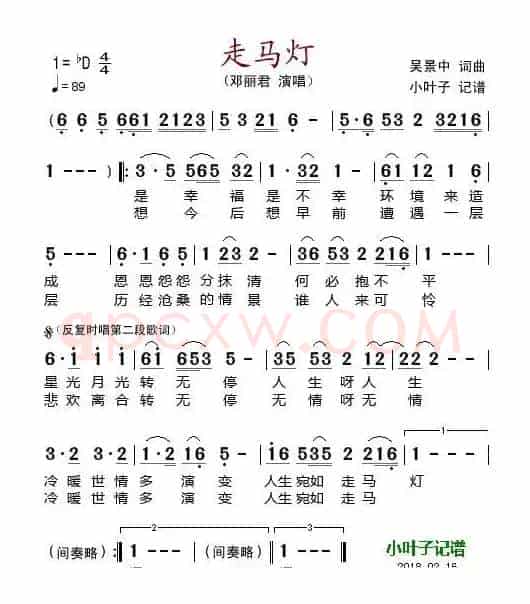 走马灯
1=♭D 4/4
♩=89
(邓丽君 演唱)
吴景中 词曲
小叶子 记谱
(6 6 5 661 2123 | 5·3 2321 6 - | 5·6 53 2 3216 |
1 - - - ) ‖: 3·5 565 32 | 1·32 1 - | 61 12 1 6 |
是 幸 福 是 不 幸 环 境 来 造
想 今 后 想 早 前 遭 遇 一 层
5 - - - | 6·1 65 | 1233 2 - | 36 53 2 216 |
成 恩恩怨怨 分抹清 何必抱不平
层 历经沧桑的情景 谁人来可怜
𝄋(反复时唱第二段歌词)
qpcxw.com
6·i i i | 6i 653 | 532 12 | 2232 2 - |
星光月光转无停 人生呀人生
悲欢离合转无停 无情呀无情
3·2 3·2 | 1·2 16 5 - | 1656 5335 2 216 | 1 - - - |
冷暖世情多演变 人生宛如走马灯
冷暖世情多演变 人生宛如走马
(间奏略) :‖ 1 - - - (间奏略) ‖ 1 - - - ‖
小叶子记谱
2018-02-16